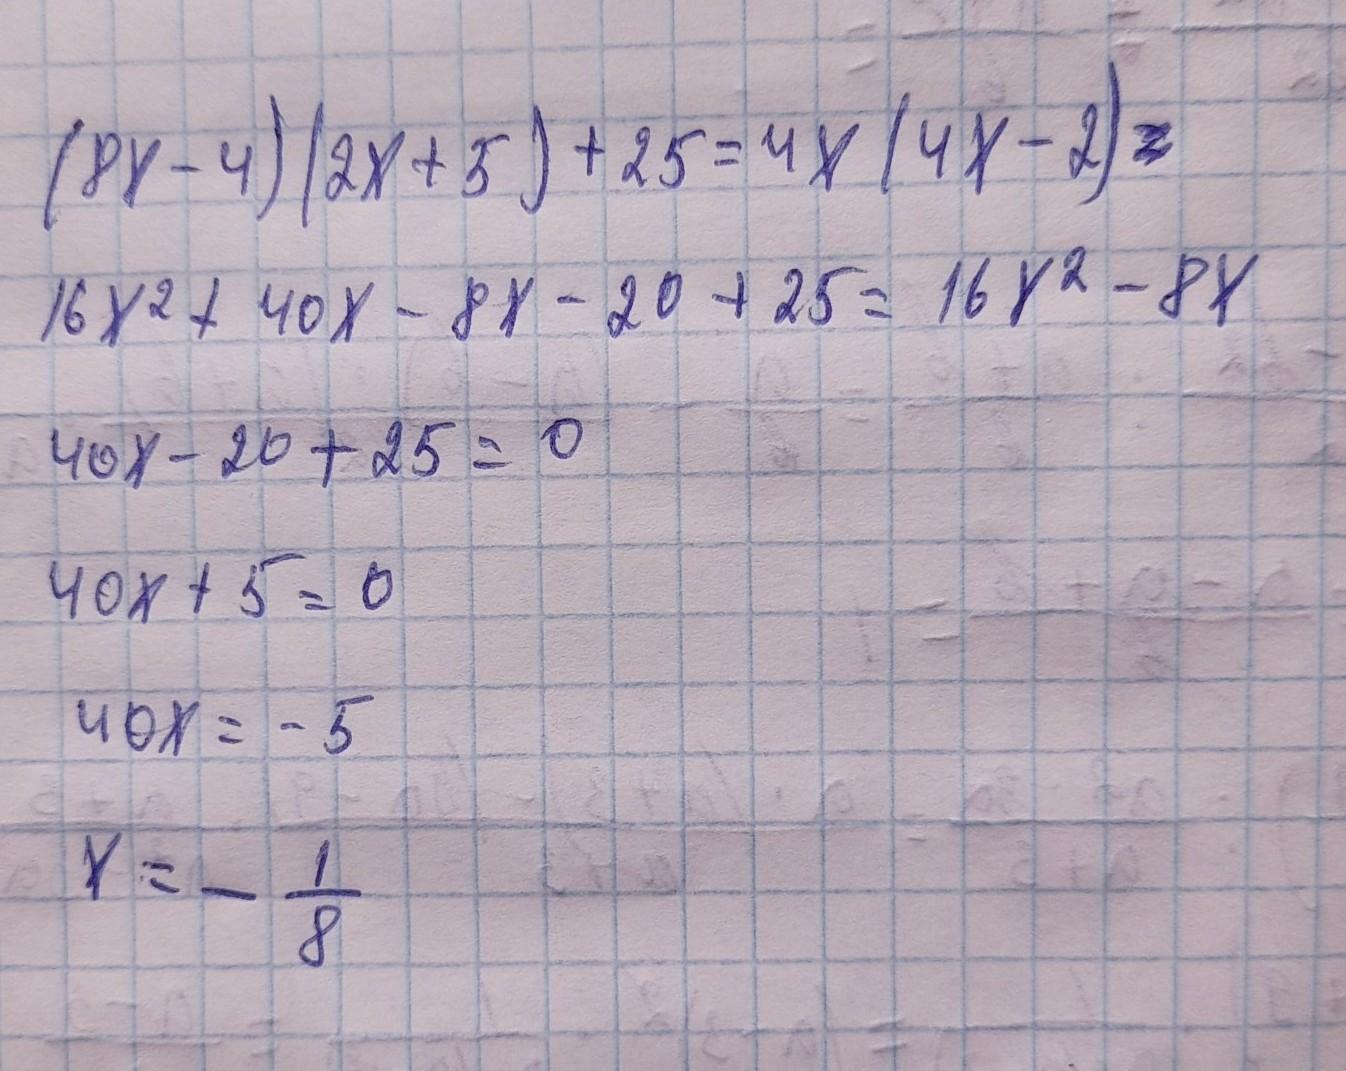 (8x-4)(2x+5)+25=4x(4x-2)
16x²+40x-8x-20+25=16x²-8x
40x-20+25=0
40x+5=0
40x=-5
x=-1/8